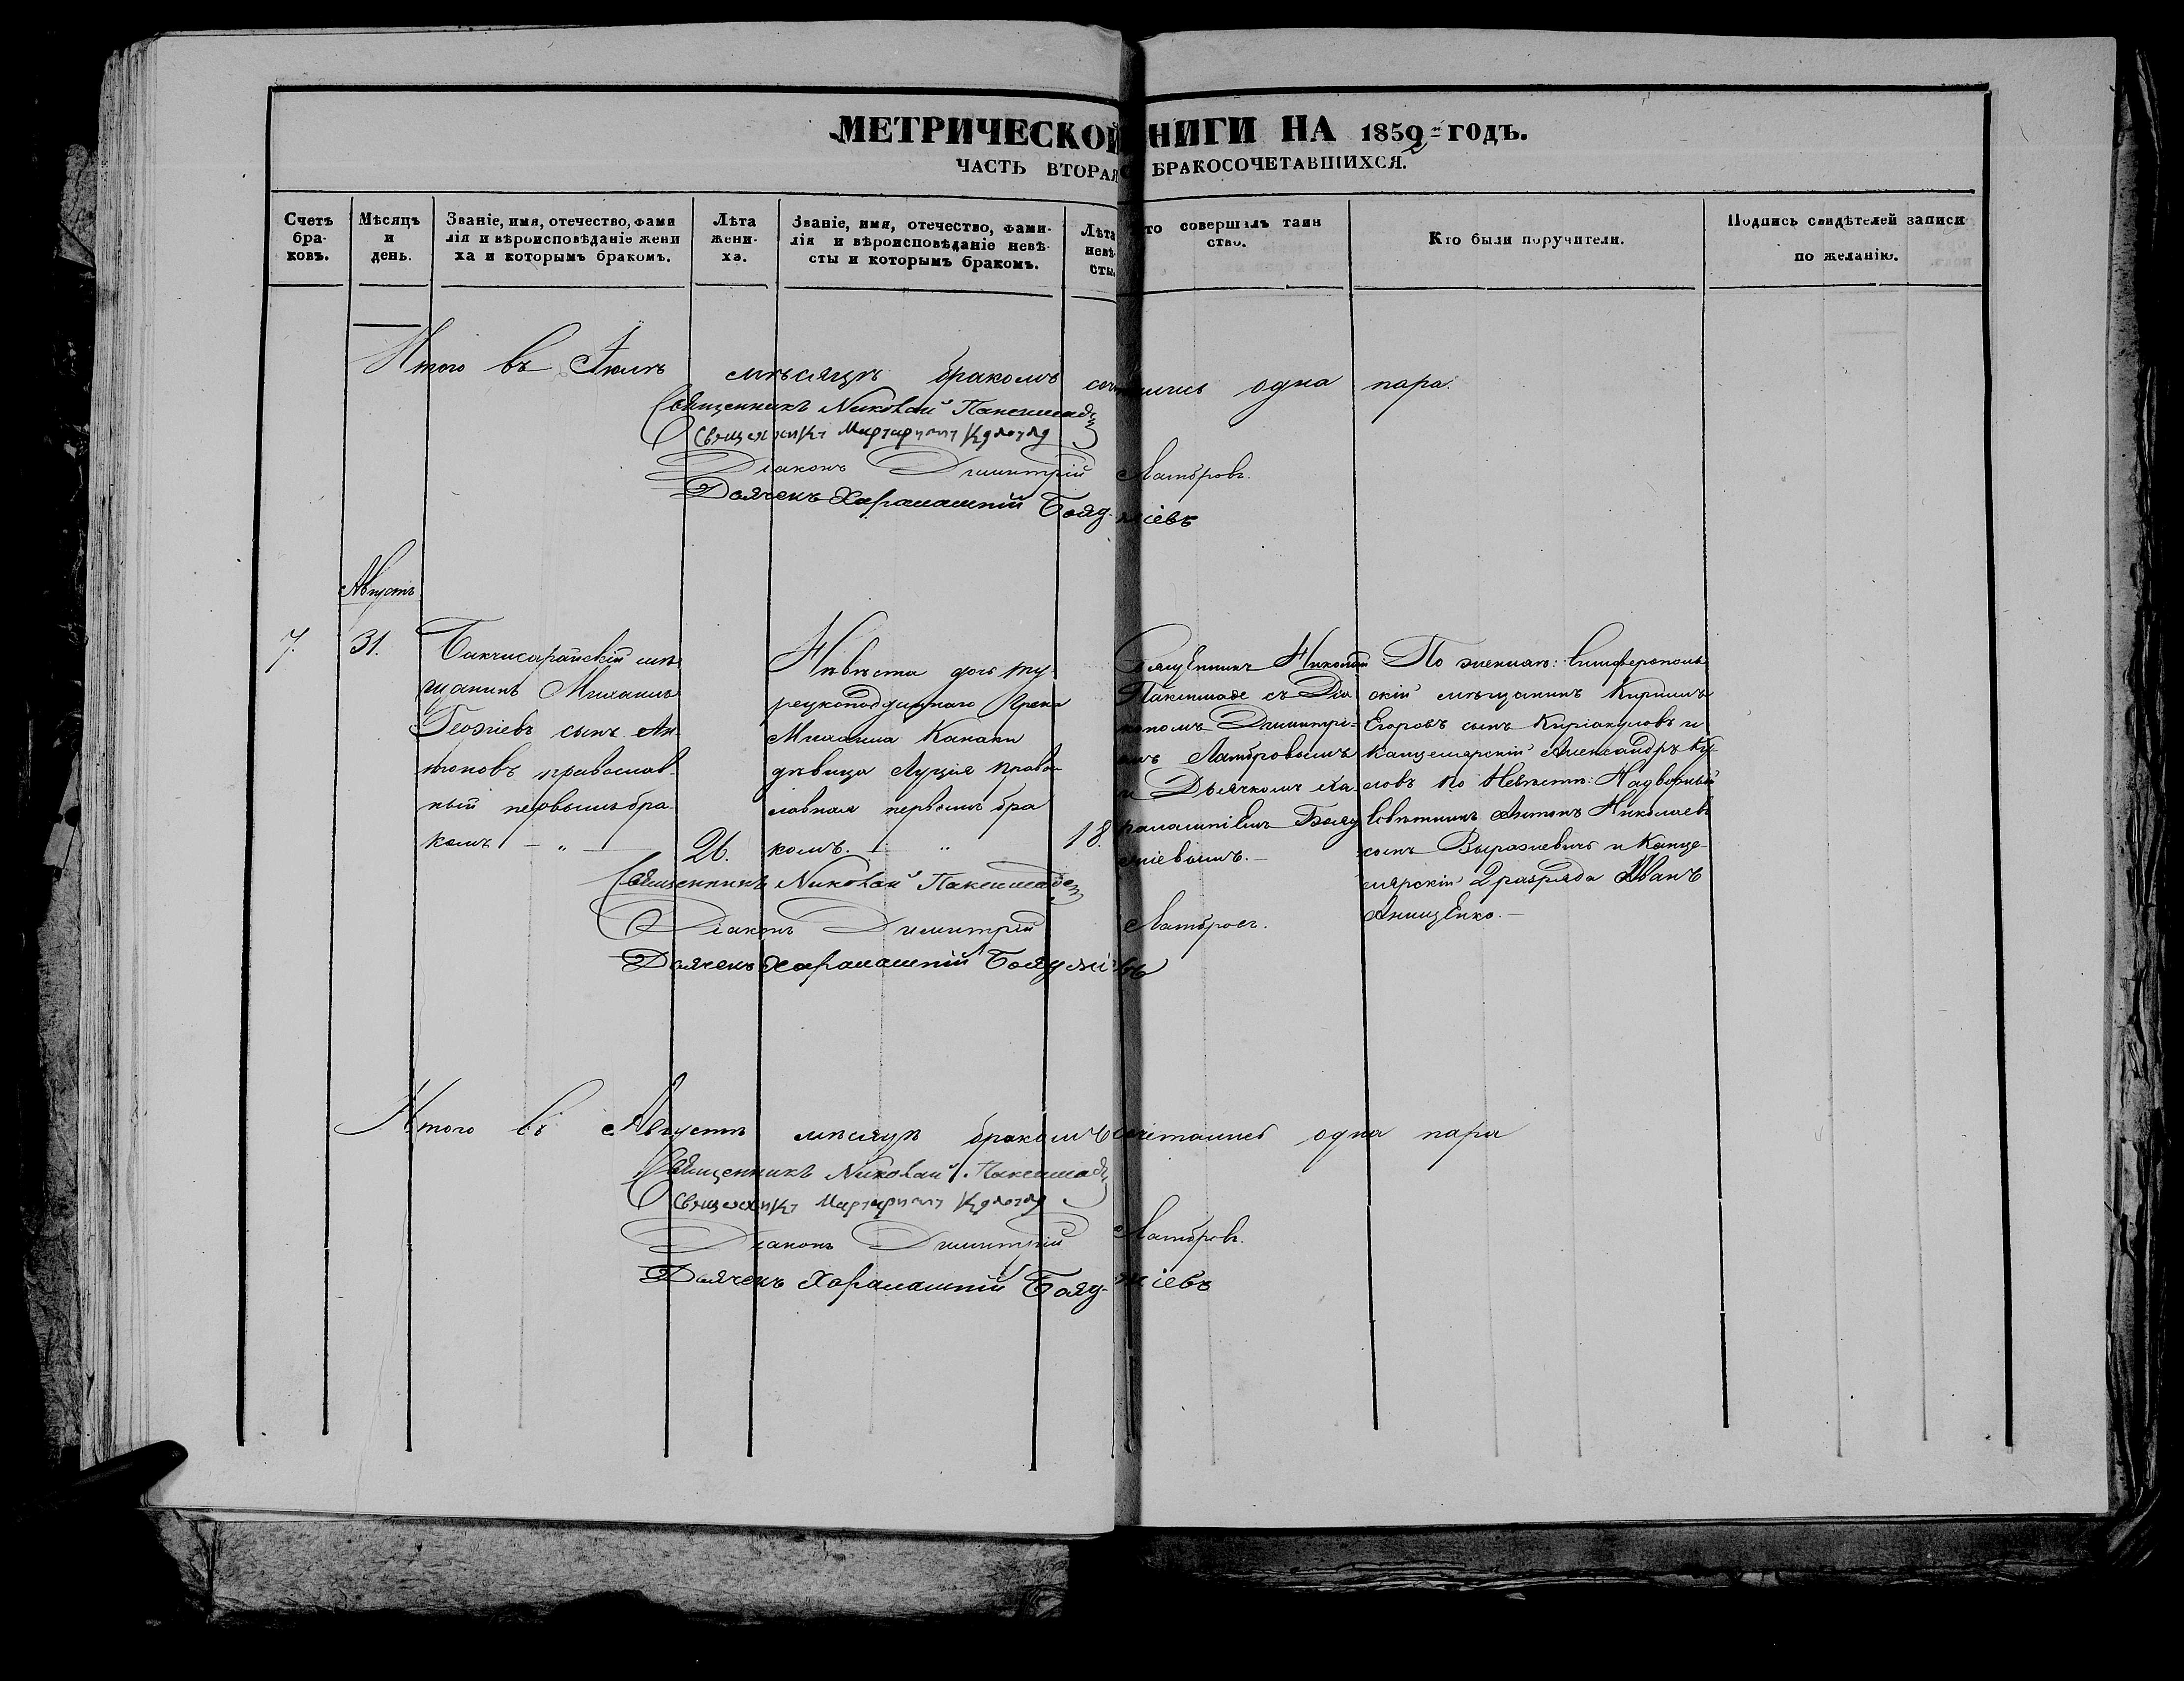 МЕТРИЧЕСКОЙ НИГИ НА 1859 ГОДЪ.
ЧАСТЬ ВТОРАЯ О БРАКОСОЧЕТАВШИХСЯ.
Счетъ
бра-
ковъ.
Мѣсяцъ
и
день.
Званіе, имя, отечество, фами
лія и вѣроисповѣданіе жени
ха и которымъ бракомъ.
Лѣта
жени-
ха.
Званіе, имя, отечество, фами-
лія и вѣроисповѣданіе невѣ-
сты и которымъ бракомъ.
Лѣта
невѣ-
сты.
то совершалъ таин
ство.
Кто были поручители.
Подпись свидѣтелей записи
по желанію.
Итого въ Іюлѣ мѣсяцѣ бракомъ сочетались одна пара.
Священникъ Николай Паксимаде
Священникъ
Діаконъ Димитрій Ламбровъ.
Дьячекъ Харалампій Бояд-жіевъ
Августъ
7.
31.
Бакчисарайскій мѣ-
щанинъ Михаилъ
Георгіевъ сынъ Ан-
тоновъ православ-
ный первымъ бра-
комъ — „ —
26.
Невѣста дочь ту-
рецкоподданнаго Грека
Михаила Канаки
дѣвица Луція право-
славная первымъ бра
комъ. — „
18.
Священникъ Николай
Паксимаде съ Діа
кономъ Димитрі-
емъ Ламбровымъ
и Дьячкомъ Ха-
ралампіемъ Бояд
жіевымъ. —
По жениху: Симферополь
скій мѣщанинъ Кирилъ
Егоровъ сынъ Киріакуловъ и
Канцелярскій Александръ
ловъ по Невѣстѣ: Надворный
Совѣтникъ Антонъ Николаевъ
сынъ и Канце-
лярскій 2 разряда Иванъ
Анищенко. —
Священникъ Николай Паксимаде
Діаконъ Димитрій Ламбровъ.
Дьячекъ Харалампій Бояджіевъ
Итого въ Августѣ мѣсяцѣ бракомъ сочетались одна пара
Священникъ Николай Паксимаде
Священникъ
Діаконъ Димитрій Ламбровъ.
Дьячекъ Харалампій Бояд-жіевъ